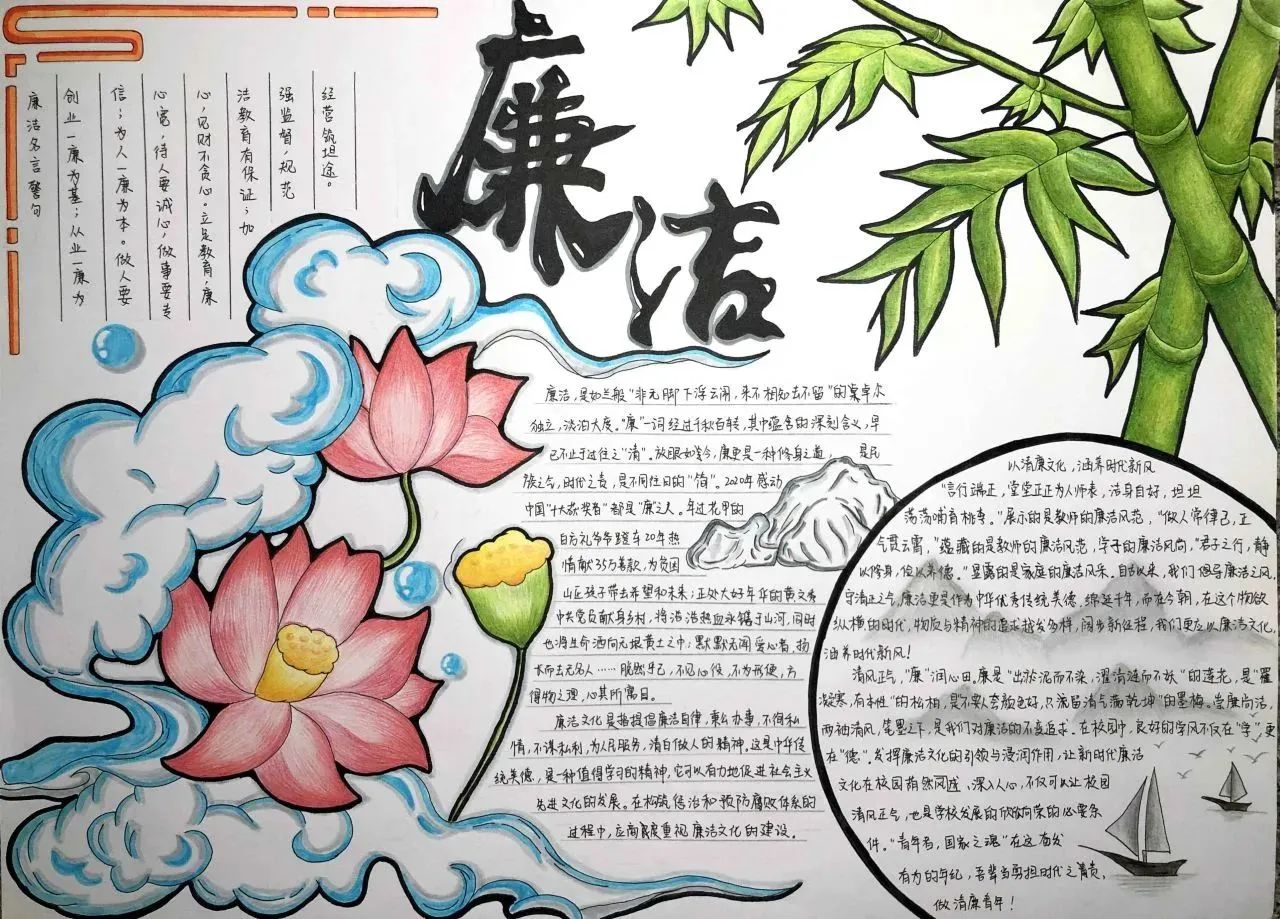 廉洁
廉洁名言警句
创业一廉为基；从业一廉为
信；为人一廉为本。做人要
心宽，待人要诚心，做事要专
心，见财不贪心。立足教育，廉
洁教育有保证；加
强监督，规范
经营筑坦途。
廉洁，是如兰般“非无脚下浮云闹，来不相知去不留”的
独立，淡泊大度。“廉”一词经过千秋百转，其中蕴含的深刻含义，早
已不止于过往之“清”。放眼如今，廉更是一种修身之道，是民
族之气，时代之责，是不同往日的“简”。2020年感动
中国“十大获奖者”都是“廉”之人。年过花甲的
白方礼爷爷蹬车20年热
情献35万善款，为贫困
山区孩子带去希望和未来；正处大好年华的黄文秀
中共党员献身乡村，将滔滔热血永镌于山河，同时
也将生命洒向无垠黄土之中；默默无闻爱心者，扬
长而去无名人……脱然乎己，不见心役，不为形使，方
得物之理，心其所寓目。
廉洁文化是指提倡廉洁自律，秉公办事，不徇私
情，不谋私利，为人民服务，清白做人的精神。这是中华传
统美德，是一种值得学习的精神，它可以有力地促进社会主义
先进文化的发展。在构筑惩治和预防腐败体系的
过程中，应高度重视廉洁文化的建设。
以清廉文化，涵养时代新风
“言行端正，堂堂正正为人师表，洁身自好，坦坦
荡荡哺育桃李。”展示的是教师的廉洁风范，“做人常律己，正
气贯云霄，”蕴藏的是教师的廉洁风范，学子的廉洁风尚，“君子之行，静
以修身，俭以养德。”显露的是家庭的廉洁风采。自古以来，我们倡导廉洁之风，
守清正之气，廉洁更是作为中华优秀传统美德，绵延千年，而在今朝，在这个物欲
纵横的时代，物质与精神的追求越发多样，阔步新征程，我们更应以廉洁文化，
涵养时代新风！
清风正气，“廉”润心田。廉是“出淤泥而不染，濯清涟而不妖”的莲花，是“罹
凝寒，有本性”的松柏，是“不要人夸颜色好，只流留清气满乾坤”的墨梅。崇廉尚洁，
两袖清风，笔墨之下，是我们对廉洁的不变追求。在校园中，良好的学风不仅在“学”，更
在“德”。发挥廉洁文化的引领与浸润作用，让新时代廉洁
文化在校园蔚然风盛，深入人心，不仅可以让校园
清风正气，也是学校发展的欣欣向荣的必要条
件。“青年者，国家之魂”在这奋发
有为的年纪，吾辈当勇担时代之责，
做清廉青年！